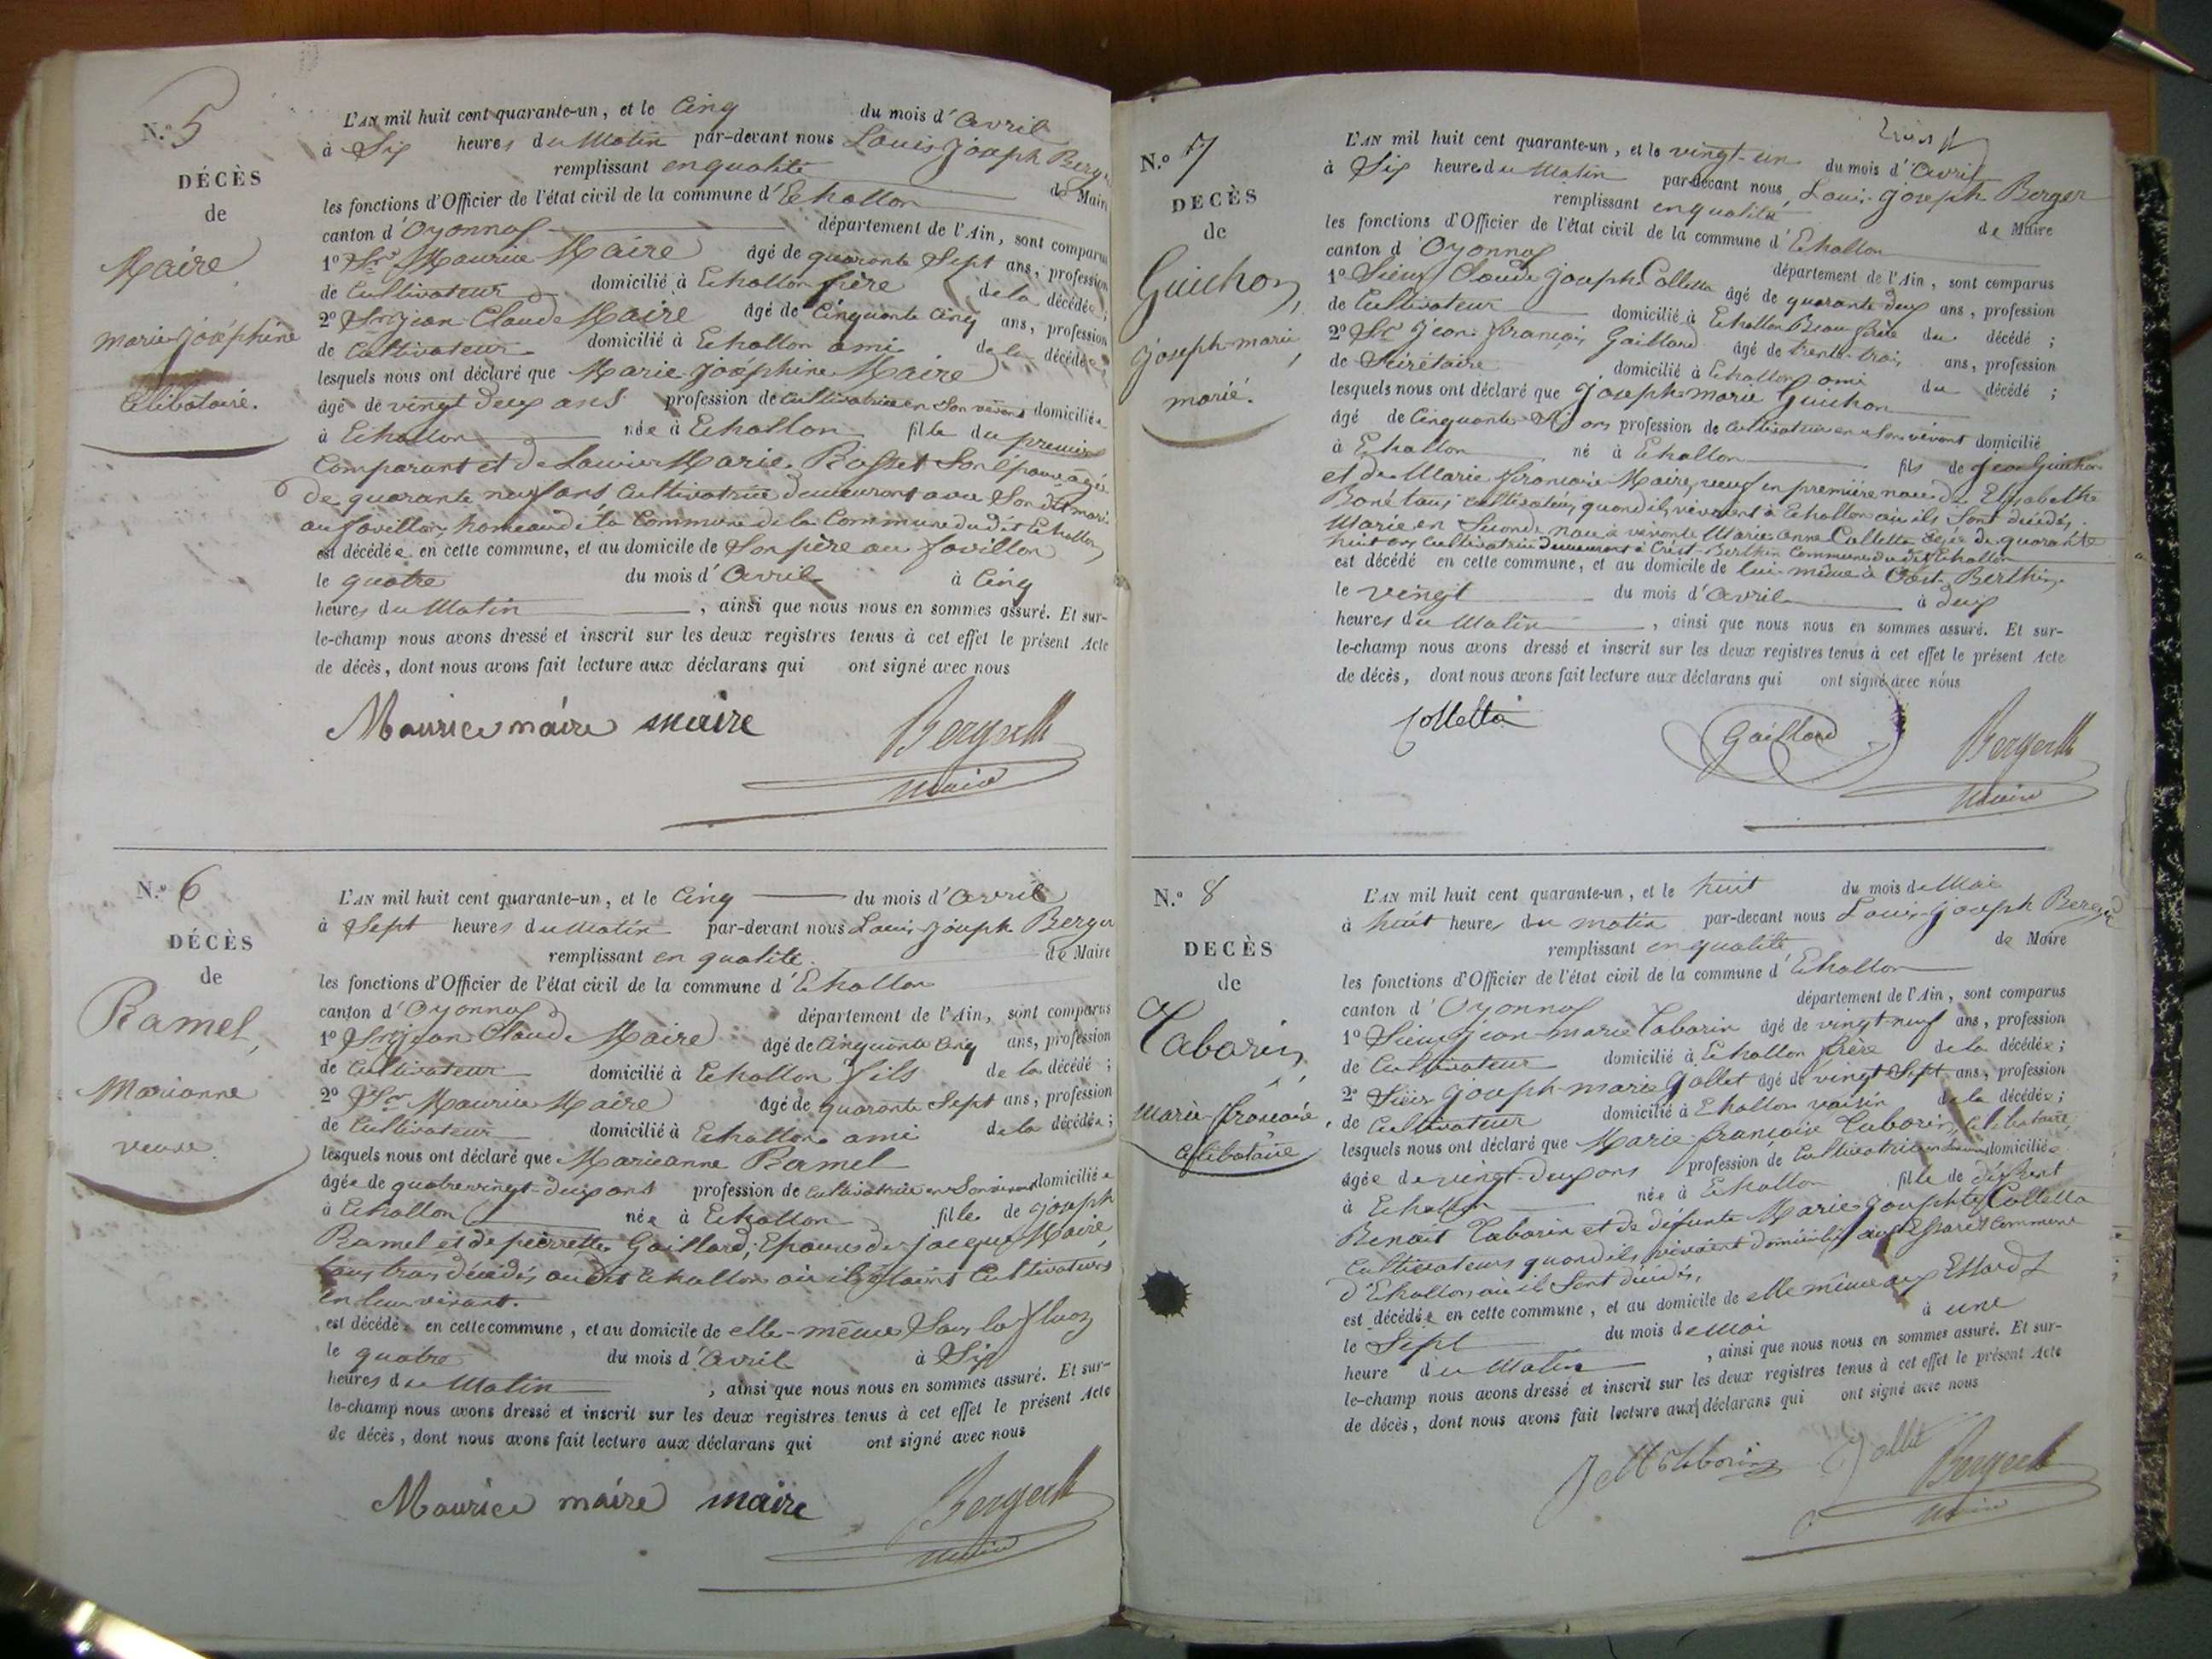 N.º 5
DÉCÈS
de
Maire
marie joséphine
Célibataire.
L'AN mil huit cent quarante-un, et le Cinq du mois d'avril
à Six heures du Matin par-devant nous Louis joseph Berger
remplissant en qualité de Maire
les fonctions d'Officier de l'état civil de la commune d'Echallon
canton d'Oyonnax département de l'Ain, sont comparus
1º Sr Maurice Maire âgé de quarante Sept ans, profession
de Cultivateur domicilié à Echallon de la décédée;
2º Sr jean Claude Maire âgé de Cinquante Cinq ans, profession
de Cultivateur domicilié à Echallon ami de la décédée
lesquels nous ont déclaré que Marie joséphine Maire
âgé de vingt deux ans profession de cultivatrice en Son vivant domiciliée
à Echallon née à Echallon fille du premier
Comparant et de Marie Rosset Son épouse agée
de quarante neuf ans Cultivatrice demeurant avec Son dit mari
au favillon, hameau de la Commune de la Commune dudit Echallon,
est décédée en cette commune, et au domicile de Son père au favillon
le quatre du mois d'avril à Cinq
heures du Matin, ainsi que nous nous en sommes assuré. Et sur-
le-champ nous avons dressé et inscrit sur les deux registres tenus à cet effet le présent Acte
de décès, dont nous avons fait lecture aux déclarans qui ont signé avec nous
Maurice maire maire Berger
Maire
N.º 6
DÉCÈS
de
Ramel,
Marianne
veuve.
L'AN mil huit cent quarante-un, et le Cinq du mois d'avril
à Sept heures du Matin par-devant nous Louis joseph Berger
remplissant en qualité de Maire
les fonctions d'Officier de l'état civil de la commune d'Echallon
canton d'Oyonnax département de l'Ain, sont comparus
1º Sr jean Claude Maire âgé de Cinquante Cinq ans, profession
de Cultivateur domicilié à Echallon fils de la décédé;
2º Sr Maurice Maire âgé de quarante Sept ans, profession
de Cultivateur domicilié à Echallon ami de la décédée;
lesquels nous ont déclaré que Marieanne Ramel
âgée de quatre vingt-deux ans profession de Cultivatrice en Son vivant domiciliée
à Echallon née à Echallon fille de joseph
Ramel et de pierrette Gaillard, Epouse de jacque Maire,
tous trois décédés audit Echallon où ils étaient Cultivateurs
en leur vivant.
est décédée en cette commune, et au domicile de elle-même Sous la
le quatre du mois d'avril à Six
heures du Matin, ainsi que nous nous en sommes assuré. Et sur-
le-champ nous avons dressé et inscrit sur les deux registres tenus à cet effet le présent Acte
de décès, dont nous avons fait lecture aux déclarans qui ont signé avec nous
Maurice maire maire Berger
Maire
N.º 7
DECÈS
de
Guichon,
joseph-marie,
marié.
L'AN mil huit cent quarante-un, et le vingt-un du mois d'avril
à Six heures du Matin par-devant nous Louis joseph Berger
remplissant en qualité de Maire
les fonctions d'Officier de l'état civil de la commune d'Echallon
canton d'Oyonnax département de l'Ain, sont comparus
1º Sieur Claude joseph Colletta âgé de quarante deux ans, profession
de Cultivateur domicilié à Echallon Beau frère du décédé;
2º Sr jean françois Gaillard âgé de trente-trois ans, profession
de Sécrétaire domicilié à Echallon ami du décédé;
lesquels nous ont déclaré que joseph marie Guichon
âgé de Cinquante Six ans profession de cultivateur en Son vivant domicilié
à Echallon né à Echallon fils de jean Guichon
et de Marie françoise Maire, veuf en première noce de Elisabethe
tous cultivateurs quand ils vivaient à Echallon où ils Sont décédés,
Marié en Seconde noce à vivante Marie anne Colletta agée de quarante
huit ans Cultivatrice demeurant à Crêt-Berthin Commune dudit Echallon
est décédé en cette commune, et au domicile de lui-même à Crêt-Berthin,
le vingt du mois d'avril à deux
heures du Matin, ainsi que nous nous en sommes assuré. Et sur-
le-champ nous avons dressé et inscrit sur les deux registres tenus à cet effet le présent Acte
de décès, dont nous avons fait lecture aux déclarans qui ont signé avec nous
Colletta Gaillard Berger
Maire
N.º 8
DECÈS
de
Taborin,
Marie-françoise,
Célibataire
L'AN mil huit cent quarante-un, et le huit du mois de Mai
à huit heures du matin par-devant nous Louis-joseph Berger
remplissant en qualité de Maire
les fonctions d'Officier de l'état civil de la commune d'Echallon
canton d'Oyonnax département de l'Ain, sont comparus
1º Sieur jean-marie Taborin âgé de vingt-neuf ans, profession
de Cultivateur domicilié à Echallon frère de la décédée;
2º Sieur joseph-marie Jollet âgé de vingt Sept ans, profession
de Cultivateur domicilié à Echallon voisin de la décédée;
lesquels nous ont déclaré que Marie-françoise Taborin, célibataire
âgée de vingt-deux ans profession de Cultivatrice domiciliée
à Echallon née à Echallon fille de défunt
Benoit Taborin et de défunte Marie josephte Colletta
Cultivateurs quand ils vivaient domiciliés aux Essards Commune
d'Echallon où ils Sont décédés,
est décédée en cette commune, et au domicile de elle même aux Essards
le Sept du mois de Mai à une
heure du Matin, ainsi que nous nous en sommes assuré. Et sur-
le-champ nous avons dressé et inscrit sur les deux registres tenus à cet effet le présent Acte
de décès, dont nous avons fait lecture aux déclarans qui ont signé avec nous
J M taborin Jollet Berger
Maire